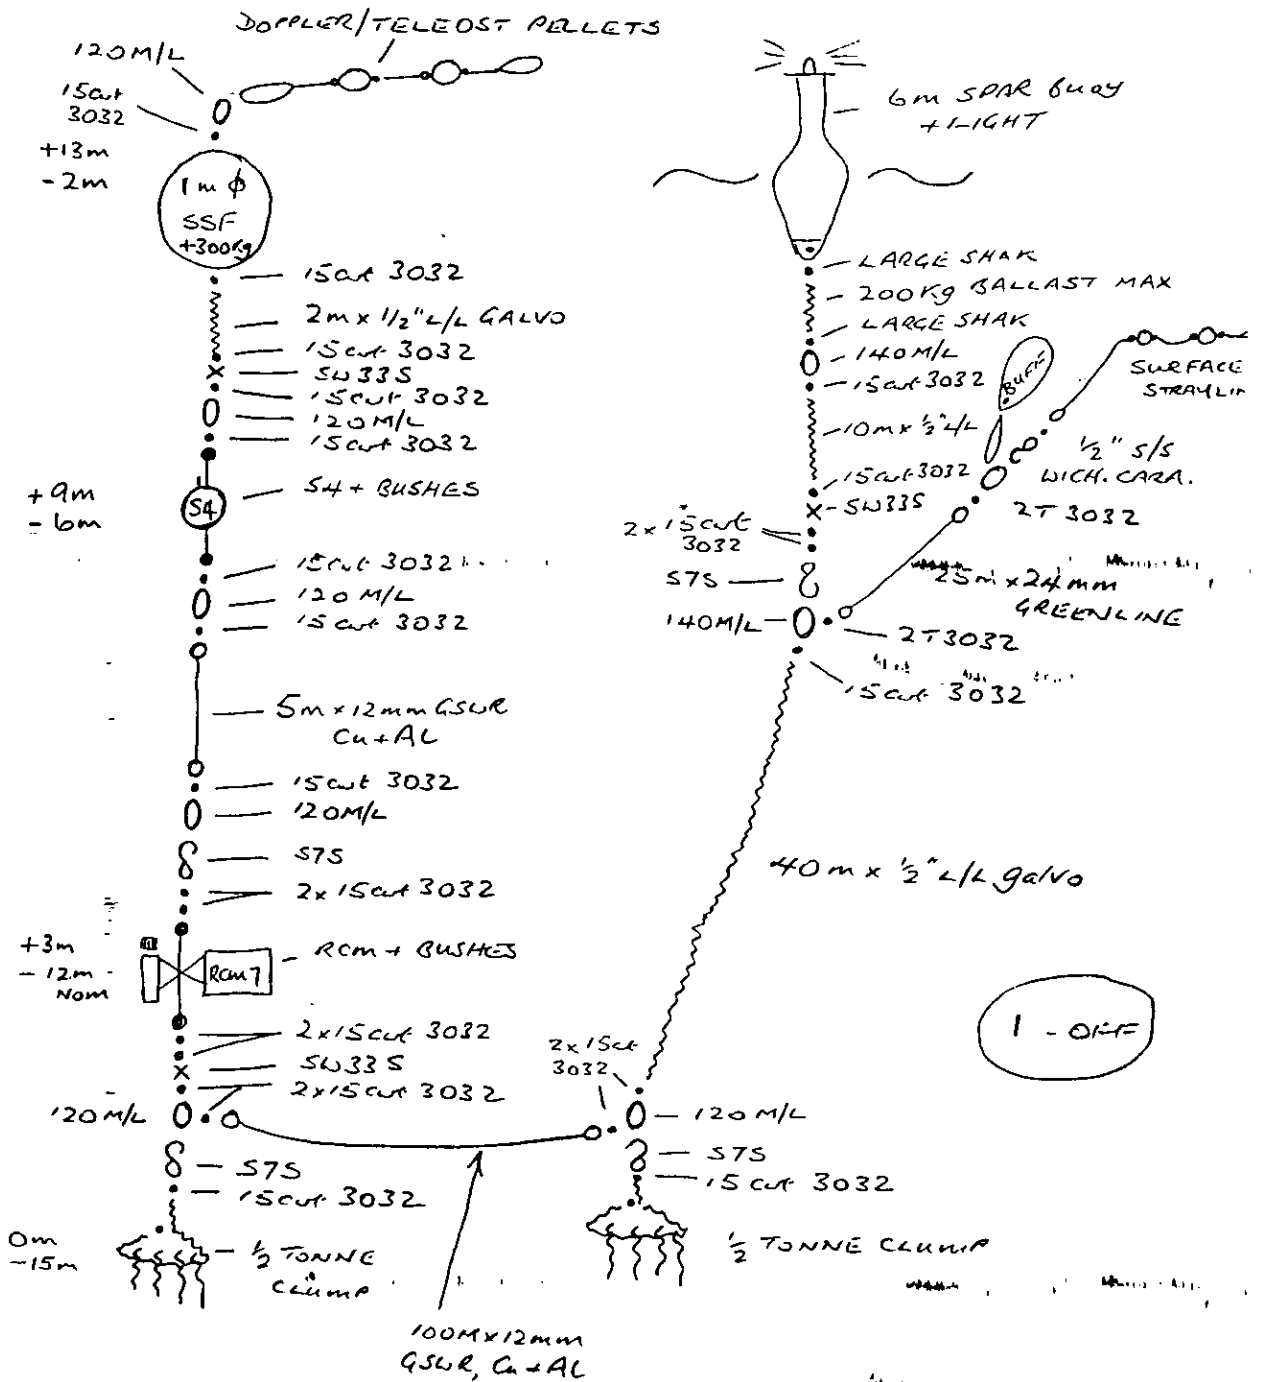 DOPPLER/TELEOST PELLETS
120M/L
15cwt
3032
+13m
-2m
1m ϕ
SSF
+300Kg
15cwt 3032
2m x 1/2" L/L GALVO
15cwt 3032
SW33S
15cwt 3032
120M/L
15cwt 3032
+9m
-6m
S4
S4 + BUSHES
15cwt 3032
120 M/L
15cwt 3032
5m x 12mm GSWR
Cu + AL
15cwt 3032
120M/L
S7S
2x 15cwt 3032
+3m
-12m
NOM
RCM7
RCM + BUSHES
2x15cwt 3032
SW33S
2x15cwt 3032
120M/L
S7S
15cwt 3032
0m
-15m
1/2 TONNE
CLUMP
100M x 12mm
GSWR, Cu + AL
6m SPAR BUOY
+ LIGHT
LARGE SHAK
200Kg BALLAST MAX
LARGE SHAK
140M/L
15cwt 3032
10m x 1/2" L/L
15cwt 3032
SW33S
2x 15cwt
3032
S7S
140M/L
2T 3032
15cwt 3032
BUFF
SURFACE
STRAYLIN
1/2" S/S
WICH. CARA.
2T 3032
25m x 24mm
GREENLINE
40m x 1/2" L/L galvo
1 - OFF
2x 15cwt
3032
120M/L
S7S
15cwt 3032
1/2 TONNE CLUMP